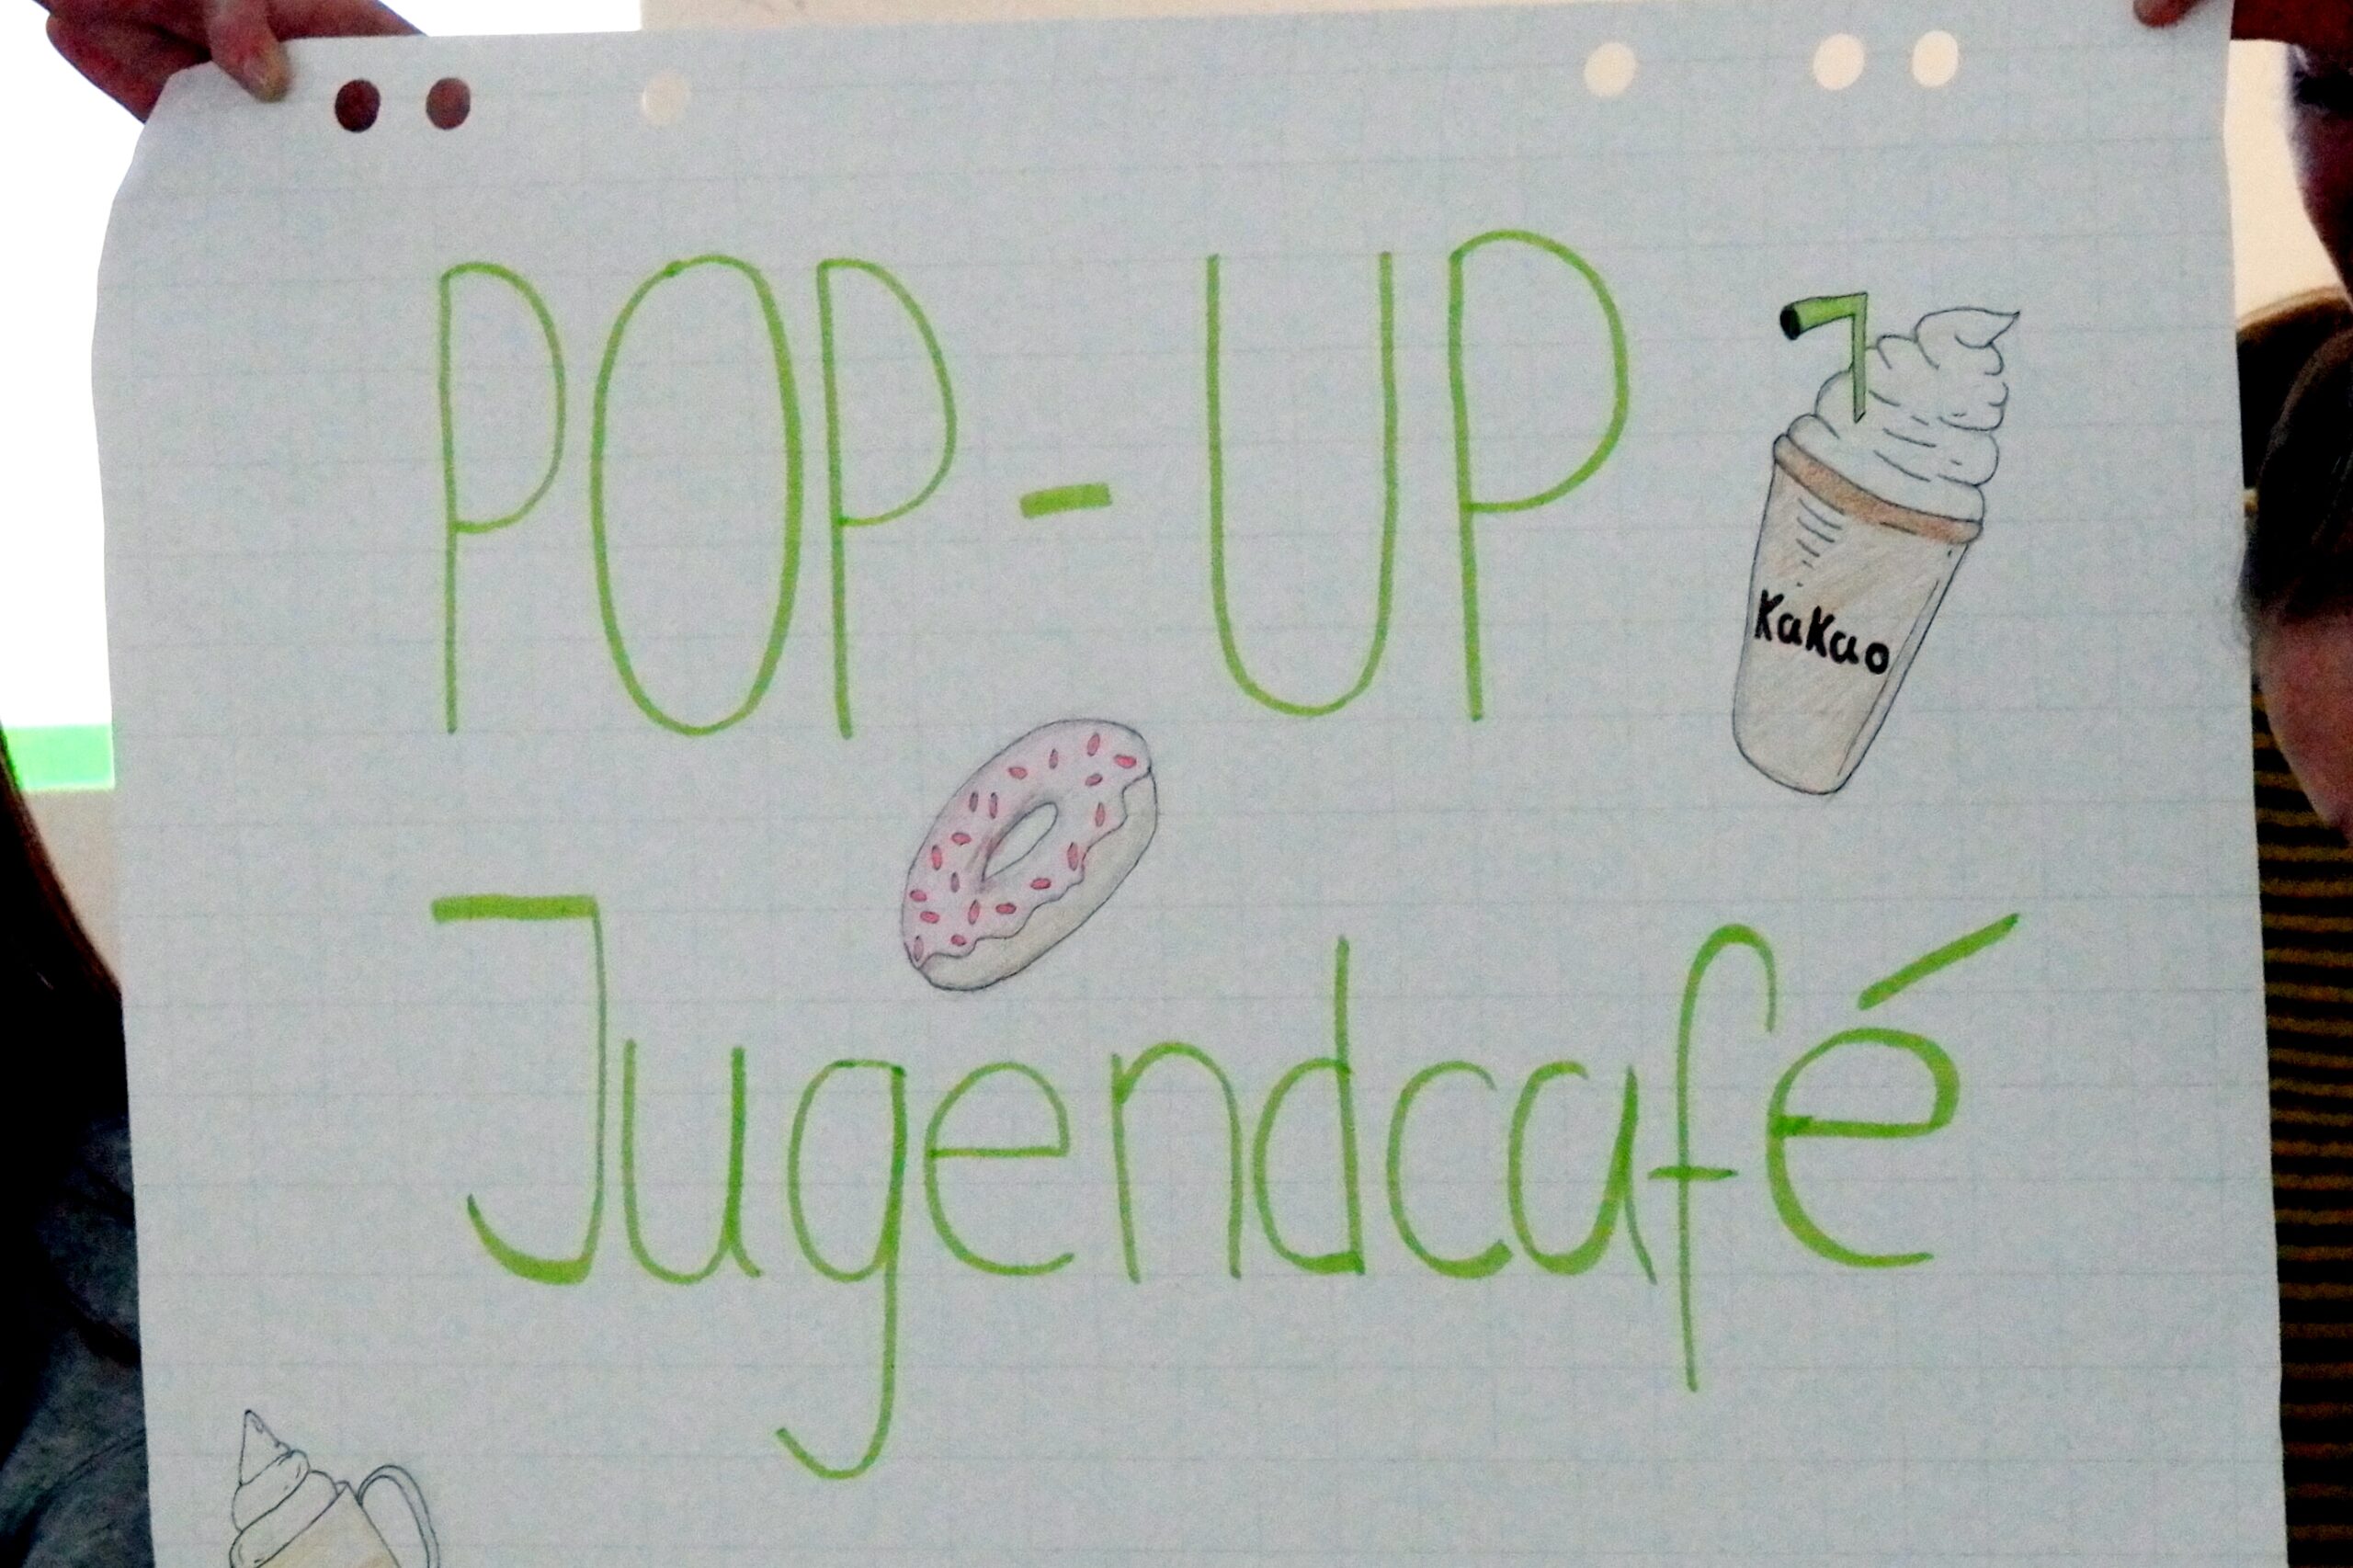 POP-UP
KaKao
Jugendcafé